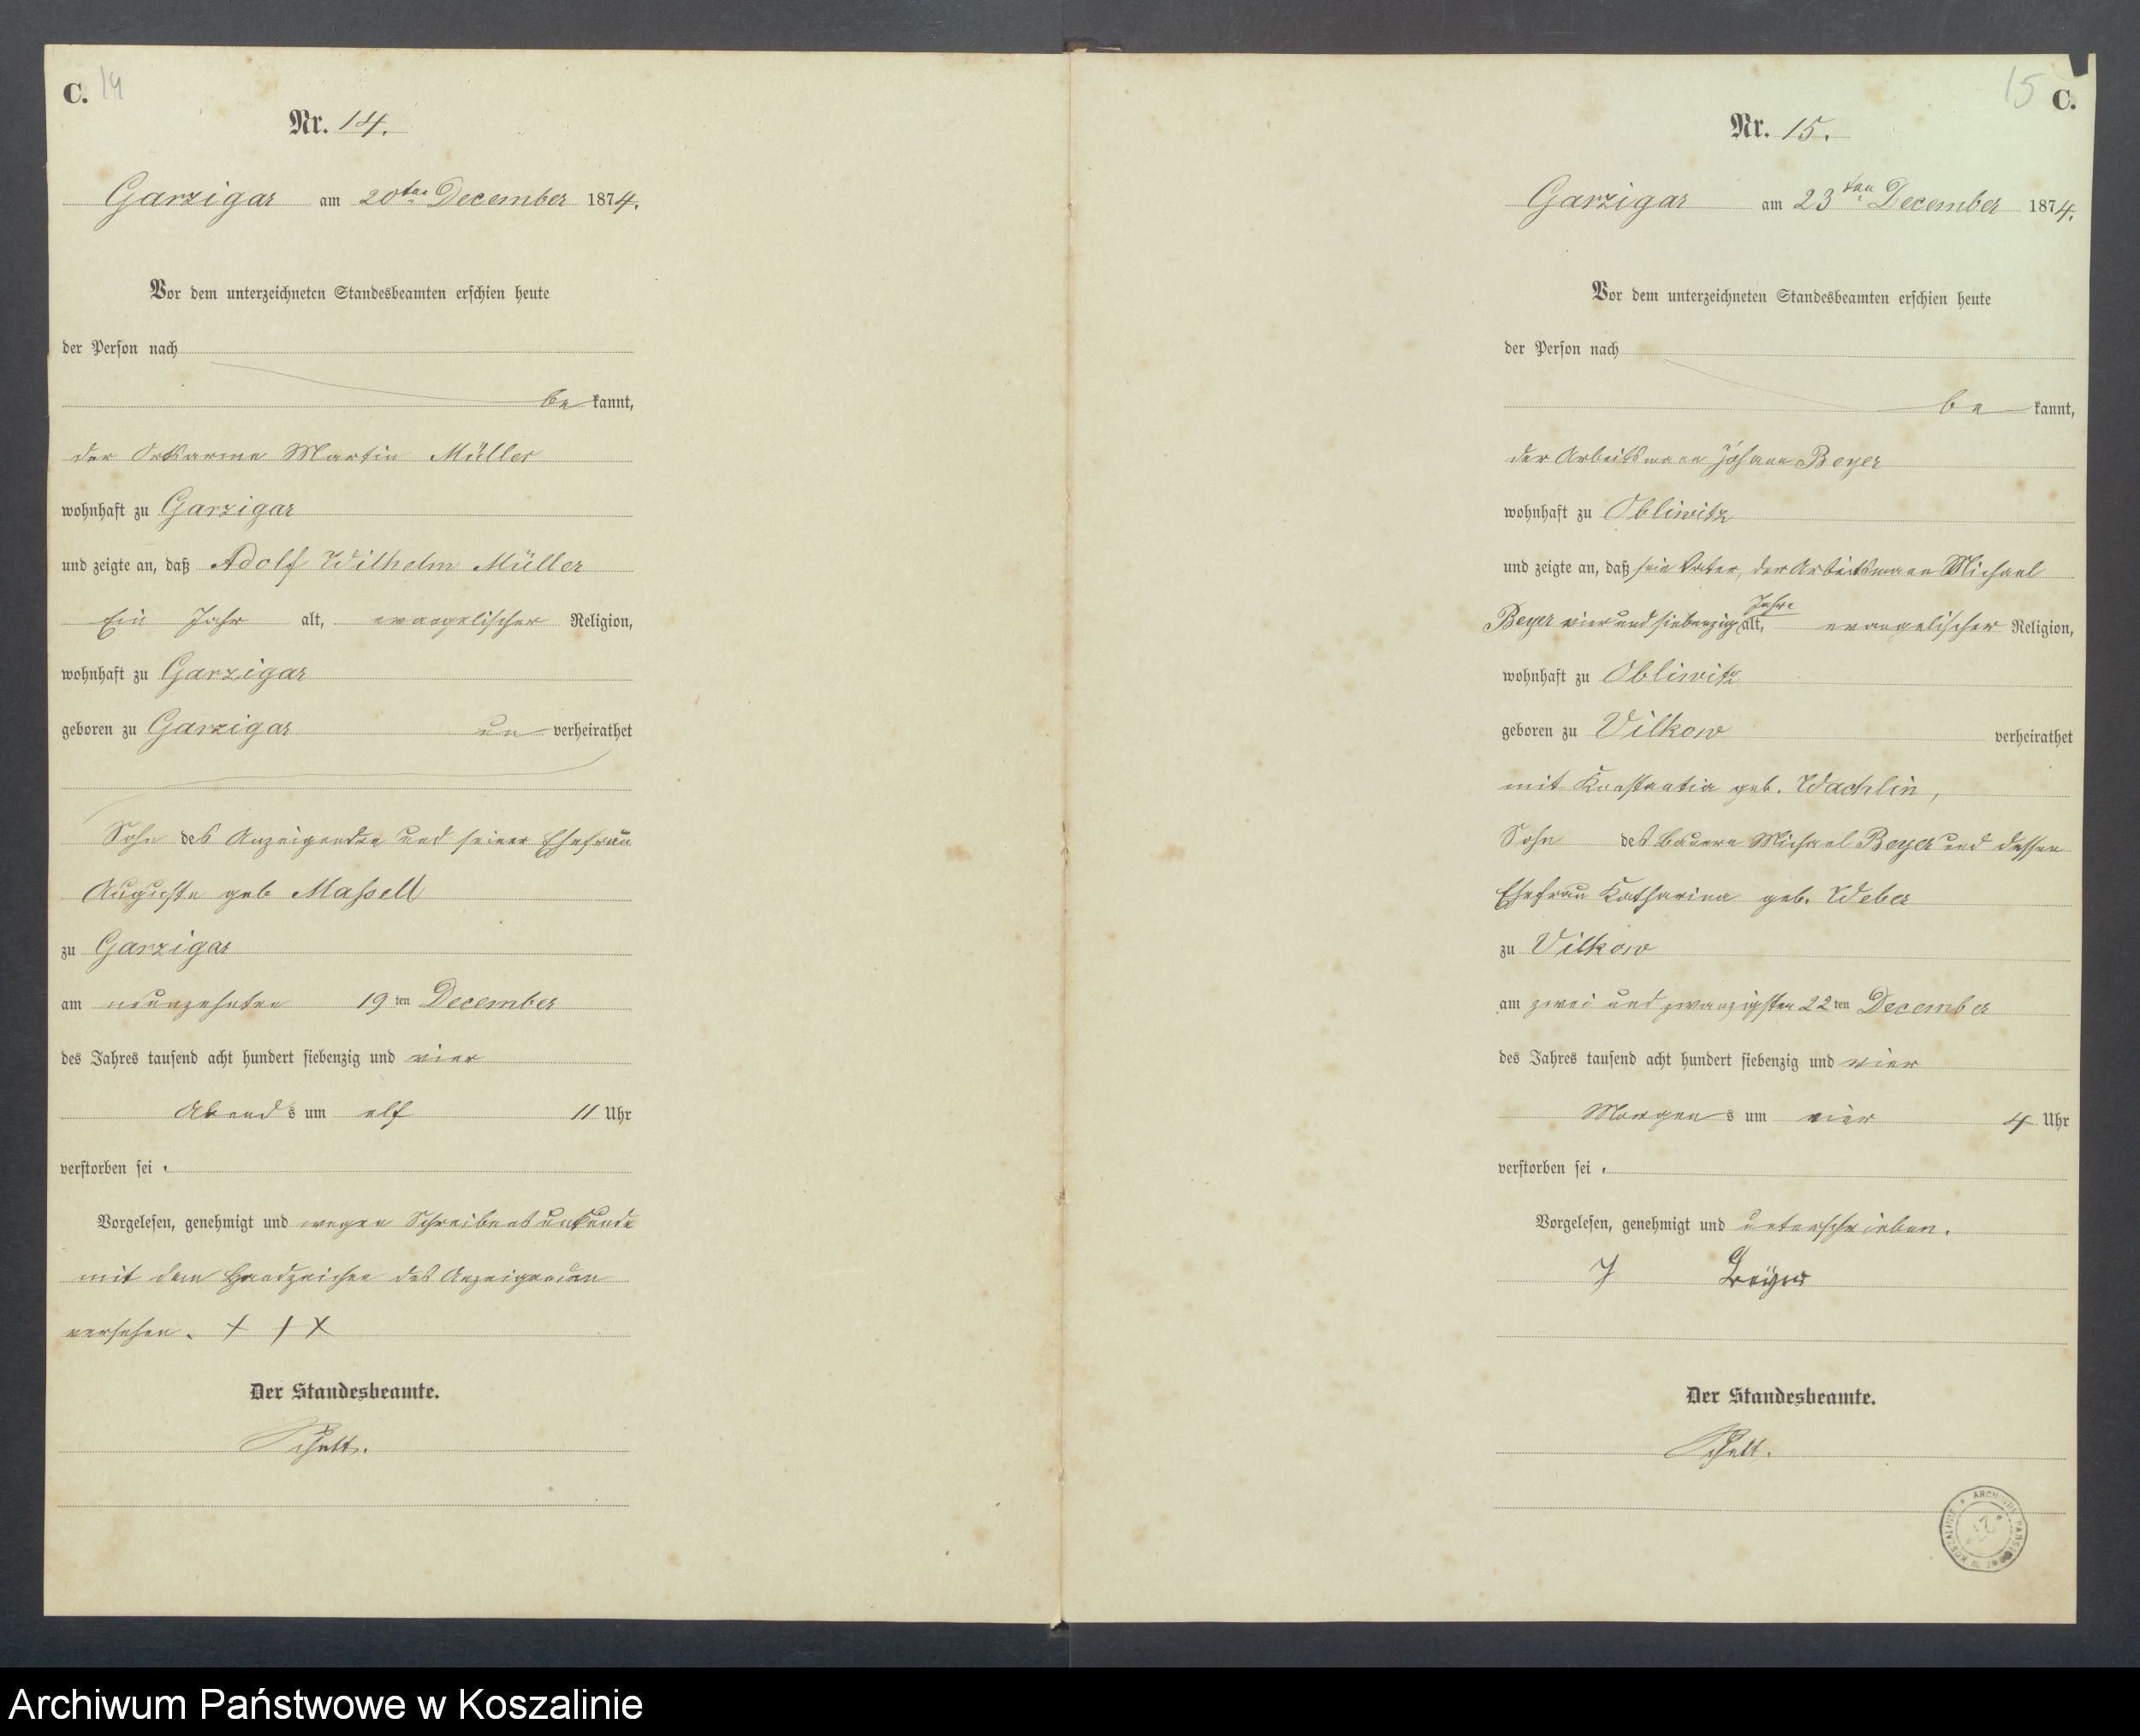 C. 14
Nr. 14.
Garzigar am 20ten December 1874.
Vor dem unterzeichneten Standesbeamten erschien heute
der Person nach
be kannt,
der Ortsarme Martin Müller
wohnhaft zu Garzigar
und zeigte an, daß Adolf Wilhelm Müller
Ein Jahr alt, evangelischer Religion,
wohnhaft zu Garzigar
geboren zu Garzigar un verheirathet
Sohn des Anzeigenden und seiner Ehefrau
Auguste geb Maßell
zu Garzigar
am neunzehnten 19ten December
des Jahres tausend acht hundert siebenzig und vier
Abends um elf 11 Uhr
verstorben sei.
Vorgelesen, genehmigt und wegen Schreibensunkunde
mit dem Handzeichen des Anzeigenden
versehen. + + X
Der Standesbeamte.
15 C.
Nr. 15.
Garzigar am 23ten December 1874.
Vor dem unterzeichneten Standesbeamten erschien heute
der Person nach
be kannt,
der Arbeitsmann Johann Beyer
wohnhaft zu Obliwitz
und zeigte an, daß sein Vater, der Arbeitsmann Michael
Beyer vier und siebenzig Jahre alt, evangelischer Religion,
wohnhaft zu Obliwitz
geboren zu Vilkow verheirathet
mit Konstantia geb. Wachlin,
Sohn des Bauern Michael Beyer und dessen
Ehefrau Katharina geb. Weber
zu Vilkow
am zwei und zwanzigsten 22ten December
des Jahres tausend acht hundert siebenzig und vier
Morgens um vier 4 Uhr
verstorben sei.
Vorgelesen, genehmigt und unterschrieben.
J Beÿer
Der Standesbeamte.
ARCHIWUM PAŃSTWOWE W KOSZALINIE
Archiwum Państwowe w Koszalinie